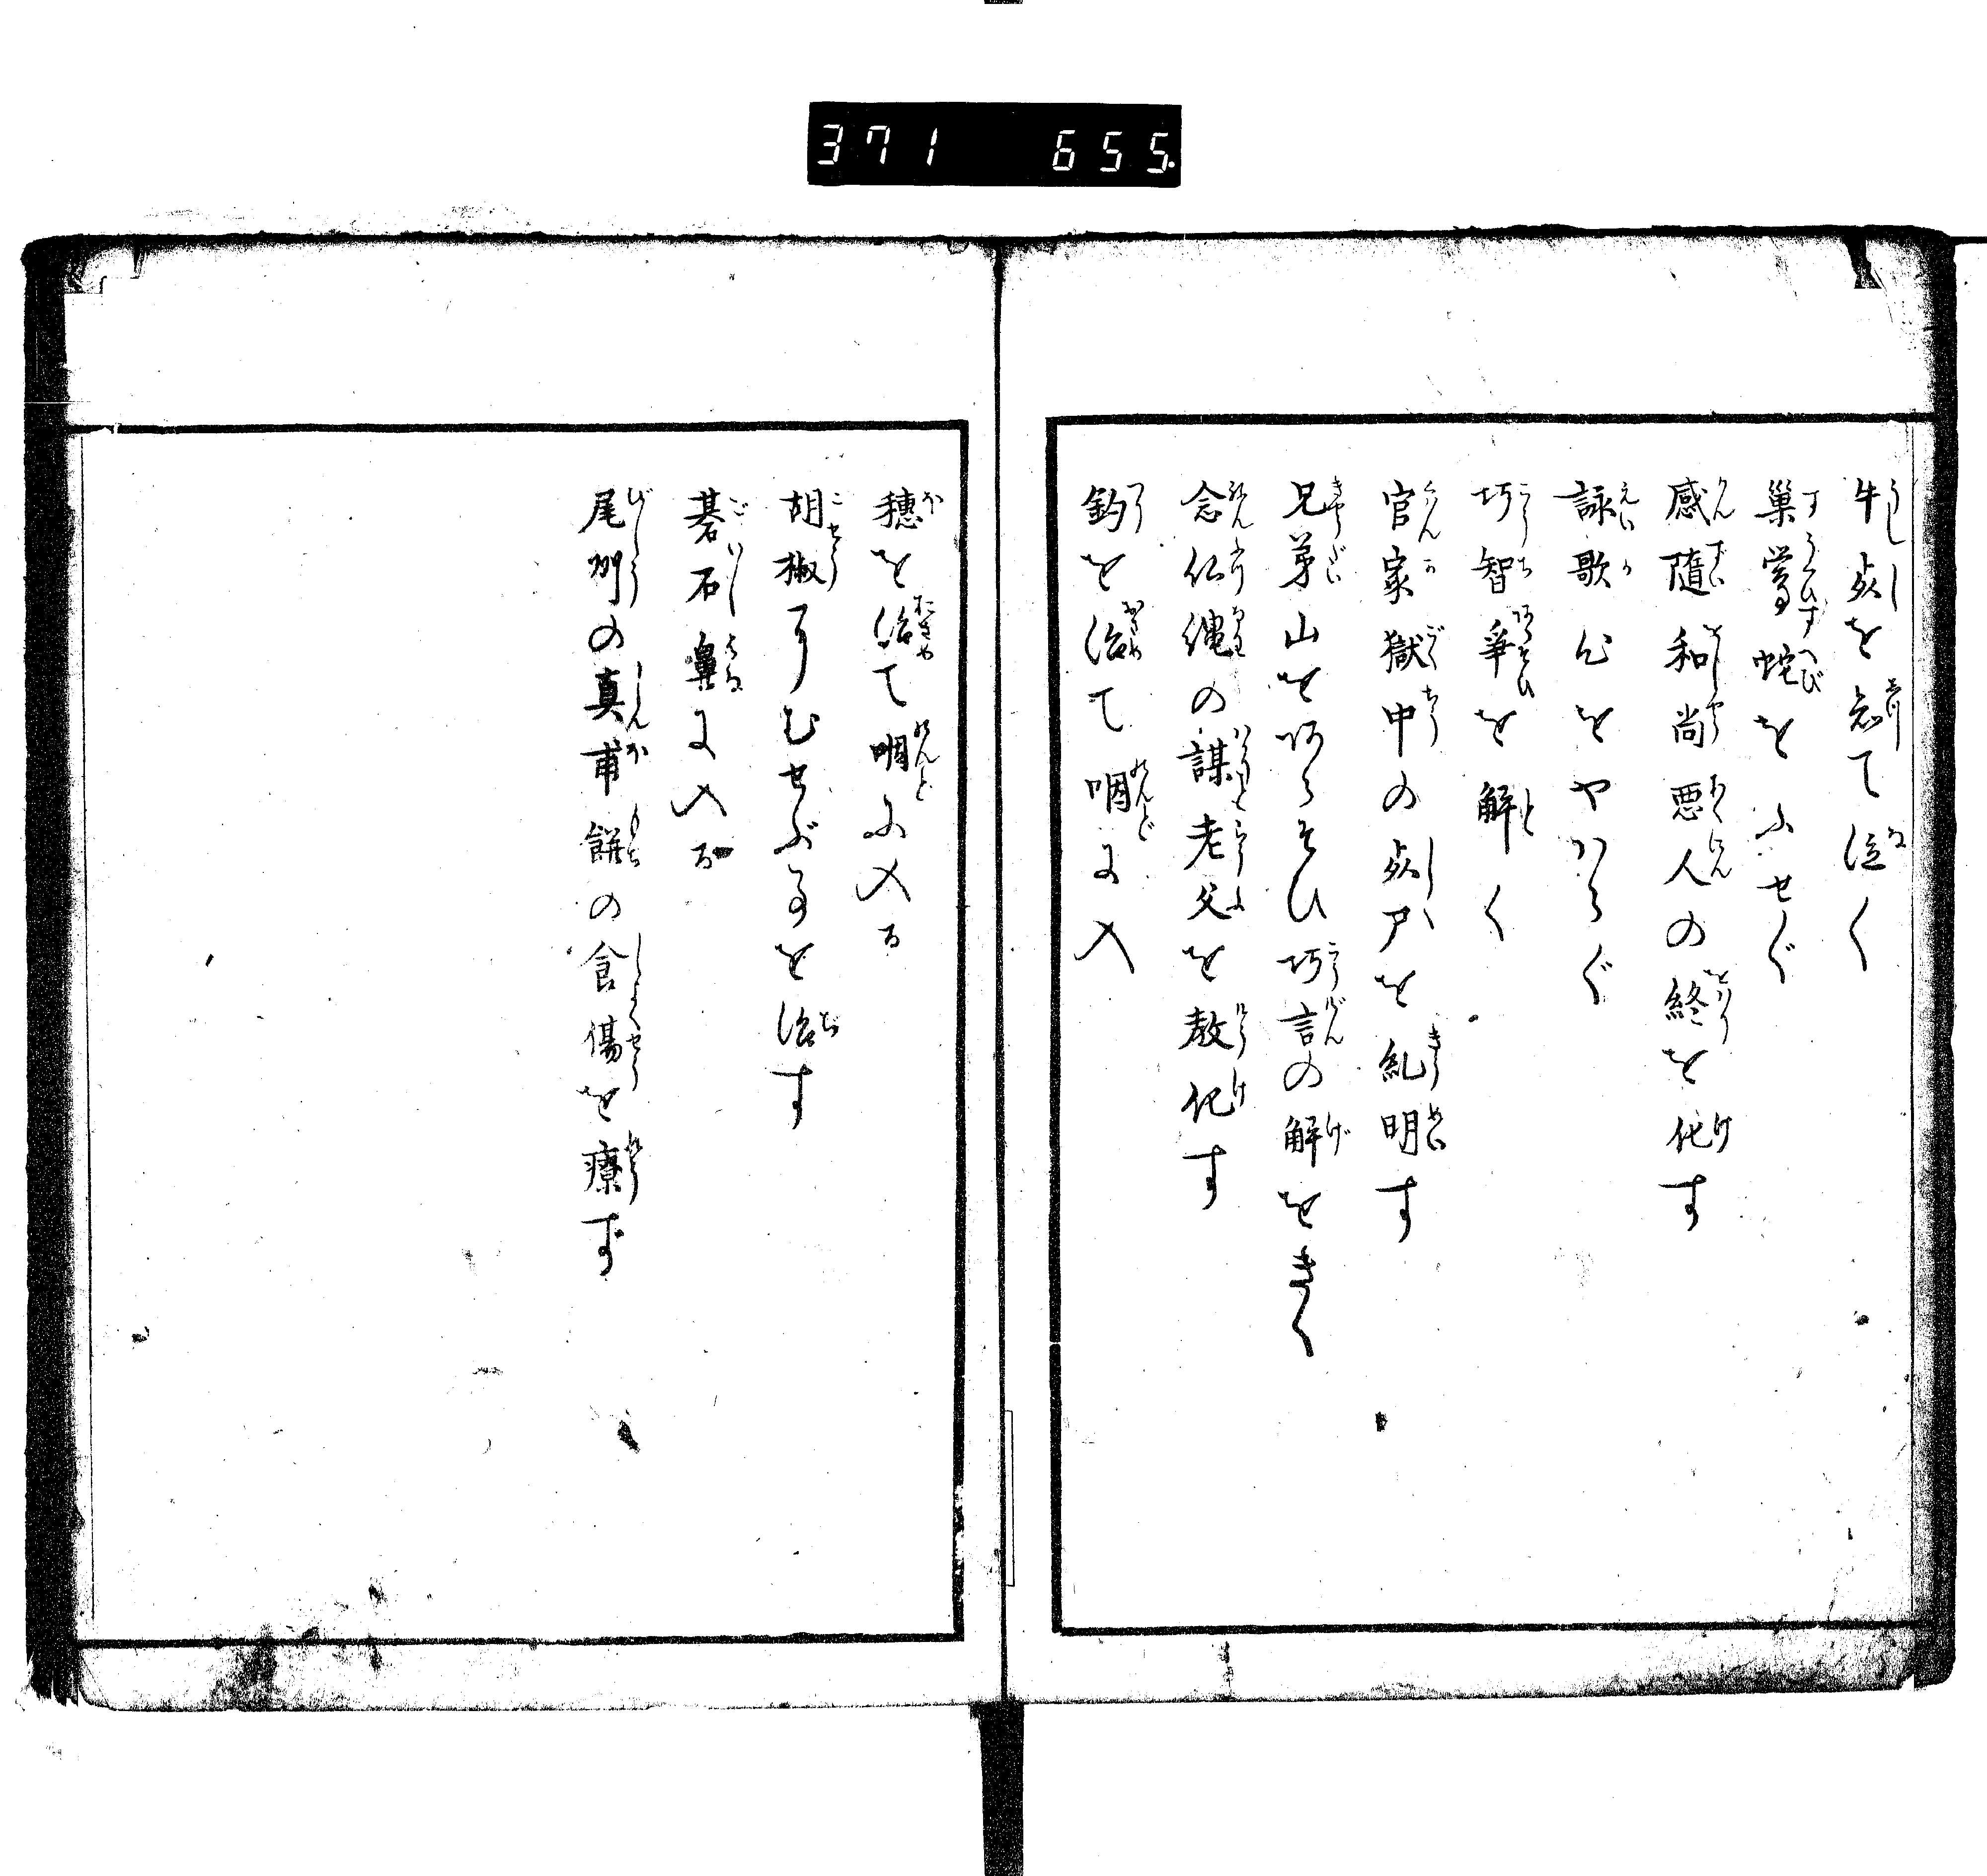 371 655
牛死を知て泣く
巣鴬蛇をふせぐ
感随和尚悪人の終を化す
詠歌心をやハらぐ
巧智争を解く
官家獄中の死尸を糺明す
兄弟山をあらそひ巧言の解をきく
念仏縄の謀老父を教化す
釣を治て咽に入
穂を治て咽に入る
胡椒にむせぶるを治す
碁石鼻に入る
尾州の真甫餅の食傷を療ず